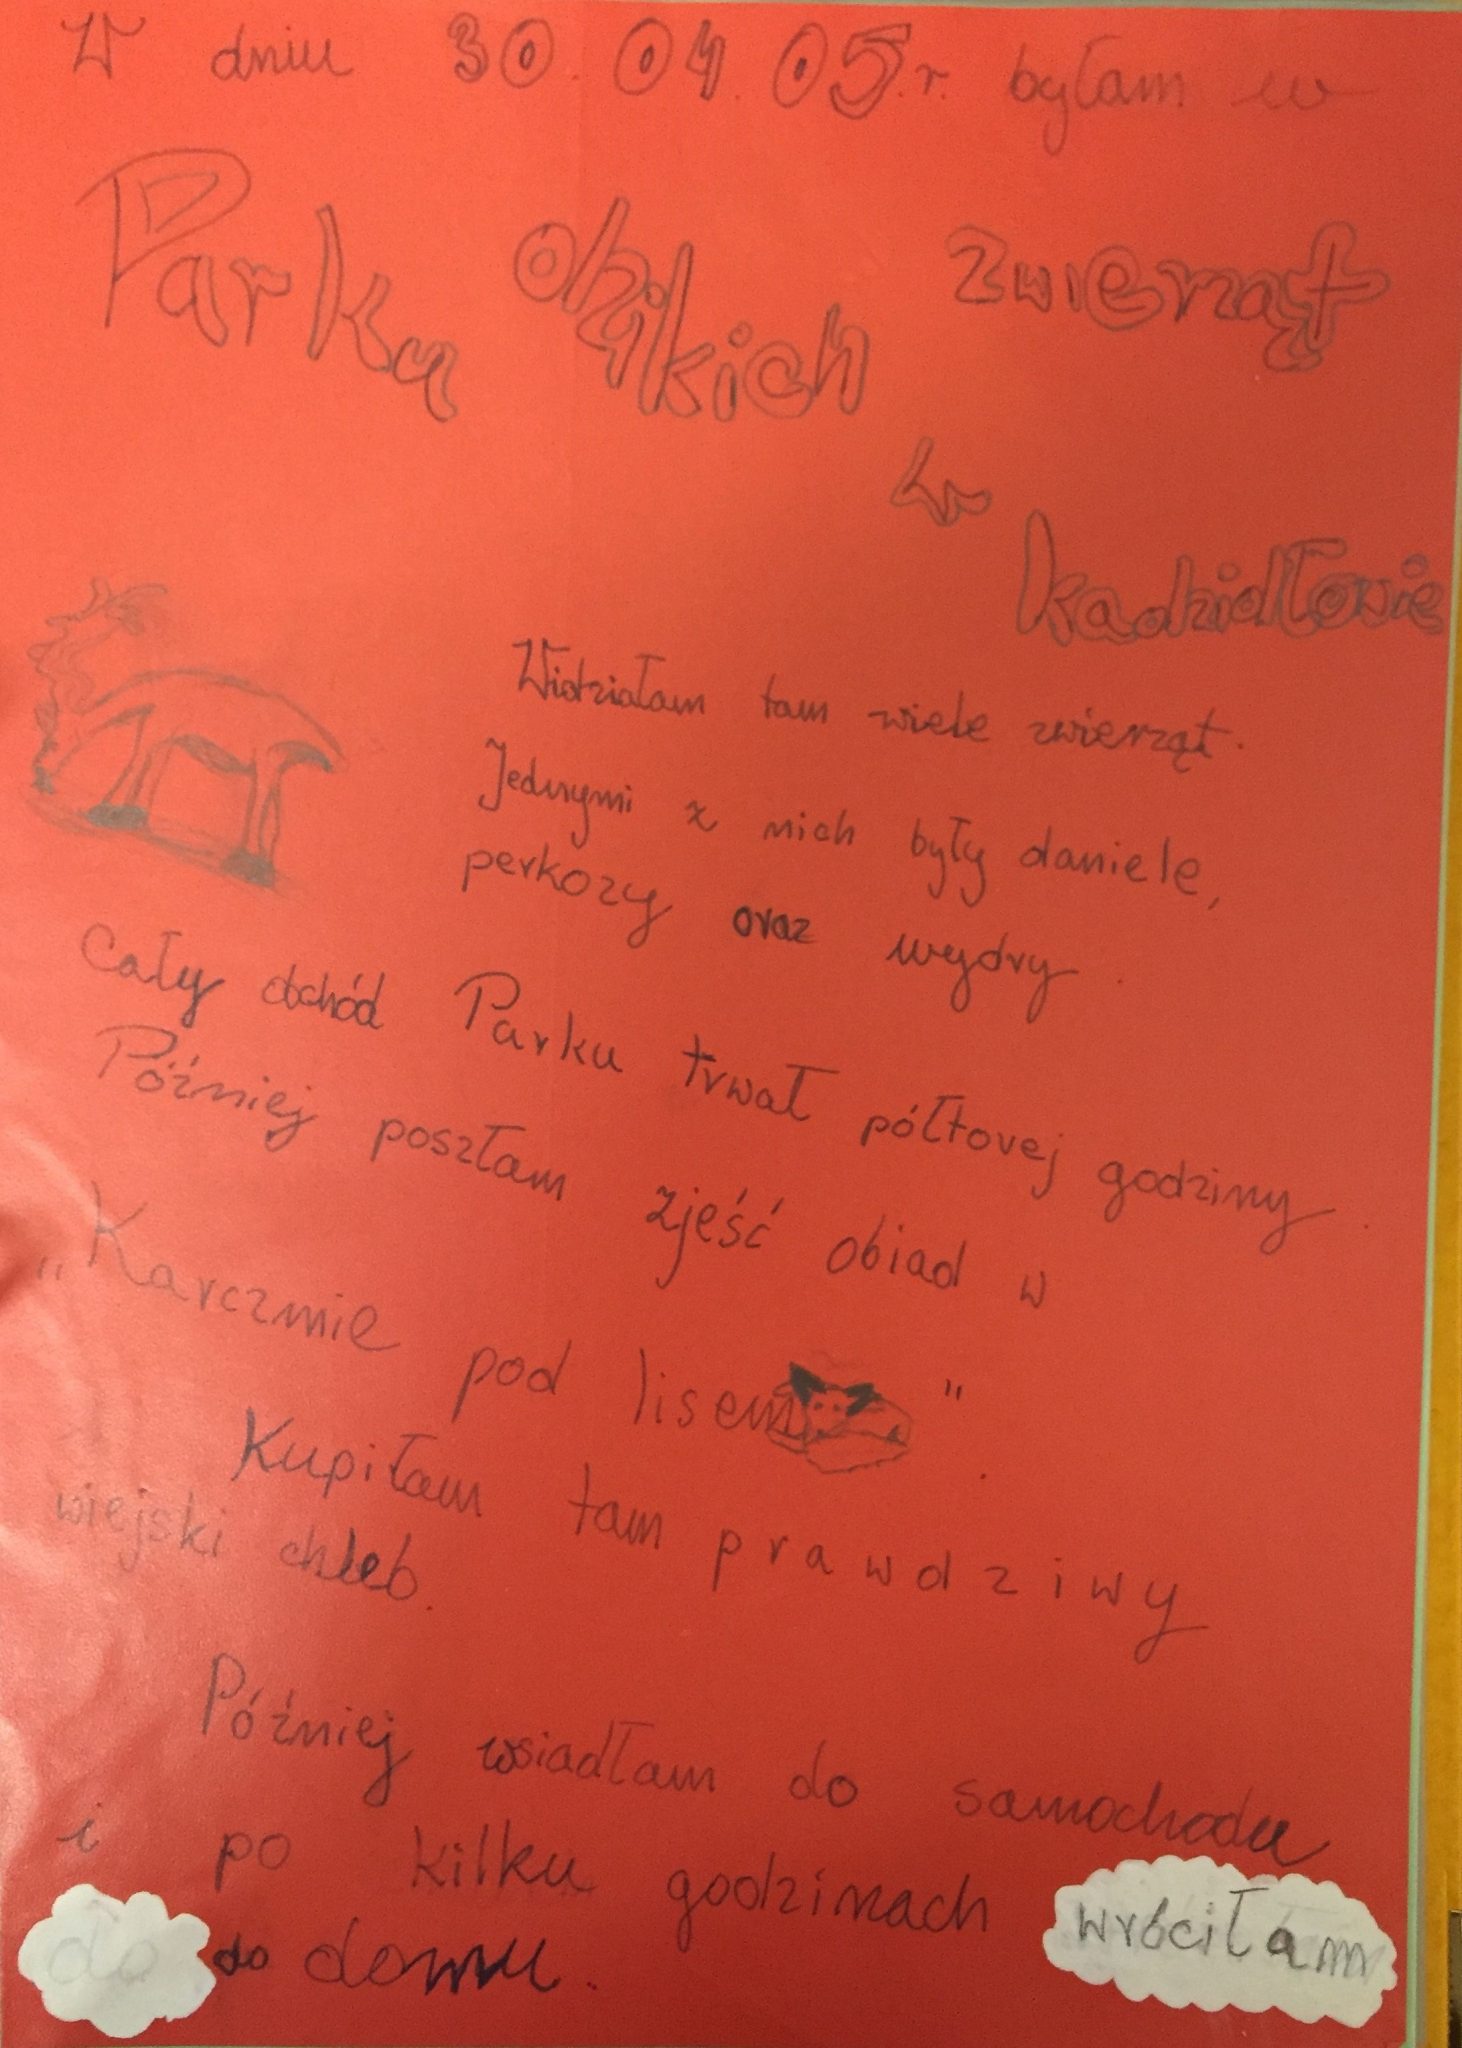 W dniu 30.04.05.r. byłam w
Parku dzikich zwierząt
w
kadzidłowie
Widziałam tam wiele zwierząt.
Jednymi z nich były daniele,
perkozy oraz wydry.
Cały obchód Parku trwał półtorej godziny.
Później poszłam zjeść obiad w
„Karczmie pod lisem".
Kupiłam tam prawdziwy
wiejski chleb.
Później wsiadłam do samochodu
i po kilku godzinach wróciłam
do do domu.